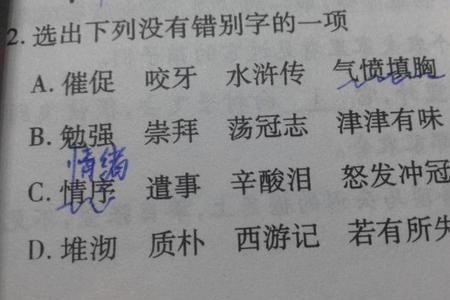 2. 选出下列没有错别字的一项
A. 催促 咬牙 水浒传 气愤填胸
B. 勉强 崇拜 荡冠志 津津有味
情绪
C. 情序 遣事 辛酸泪 怒发冲冠
D. 堆沏 质朴 西游记 若有所失